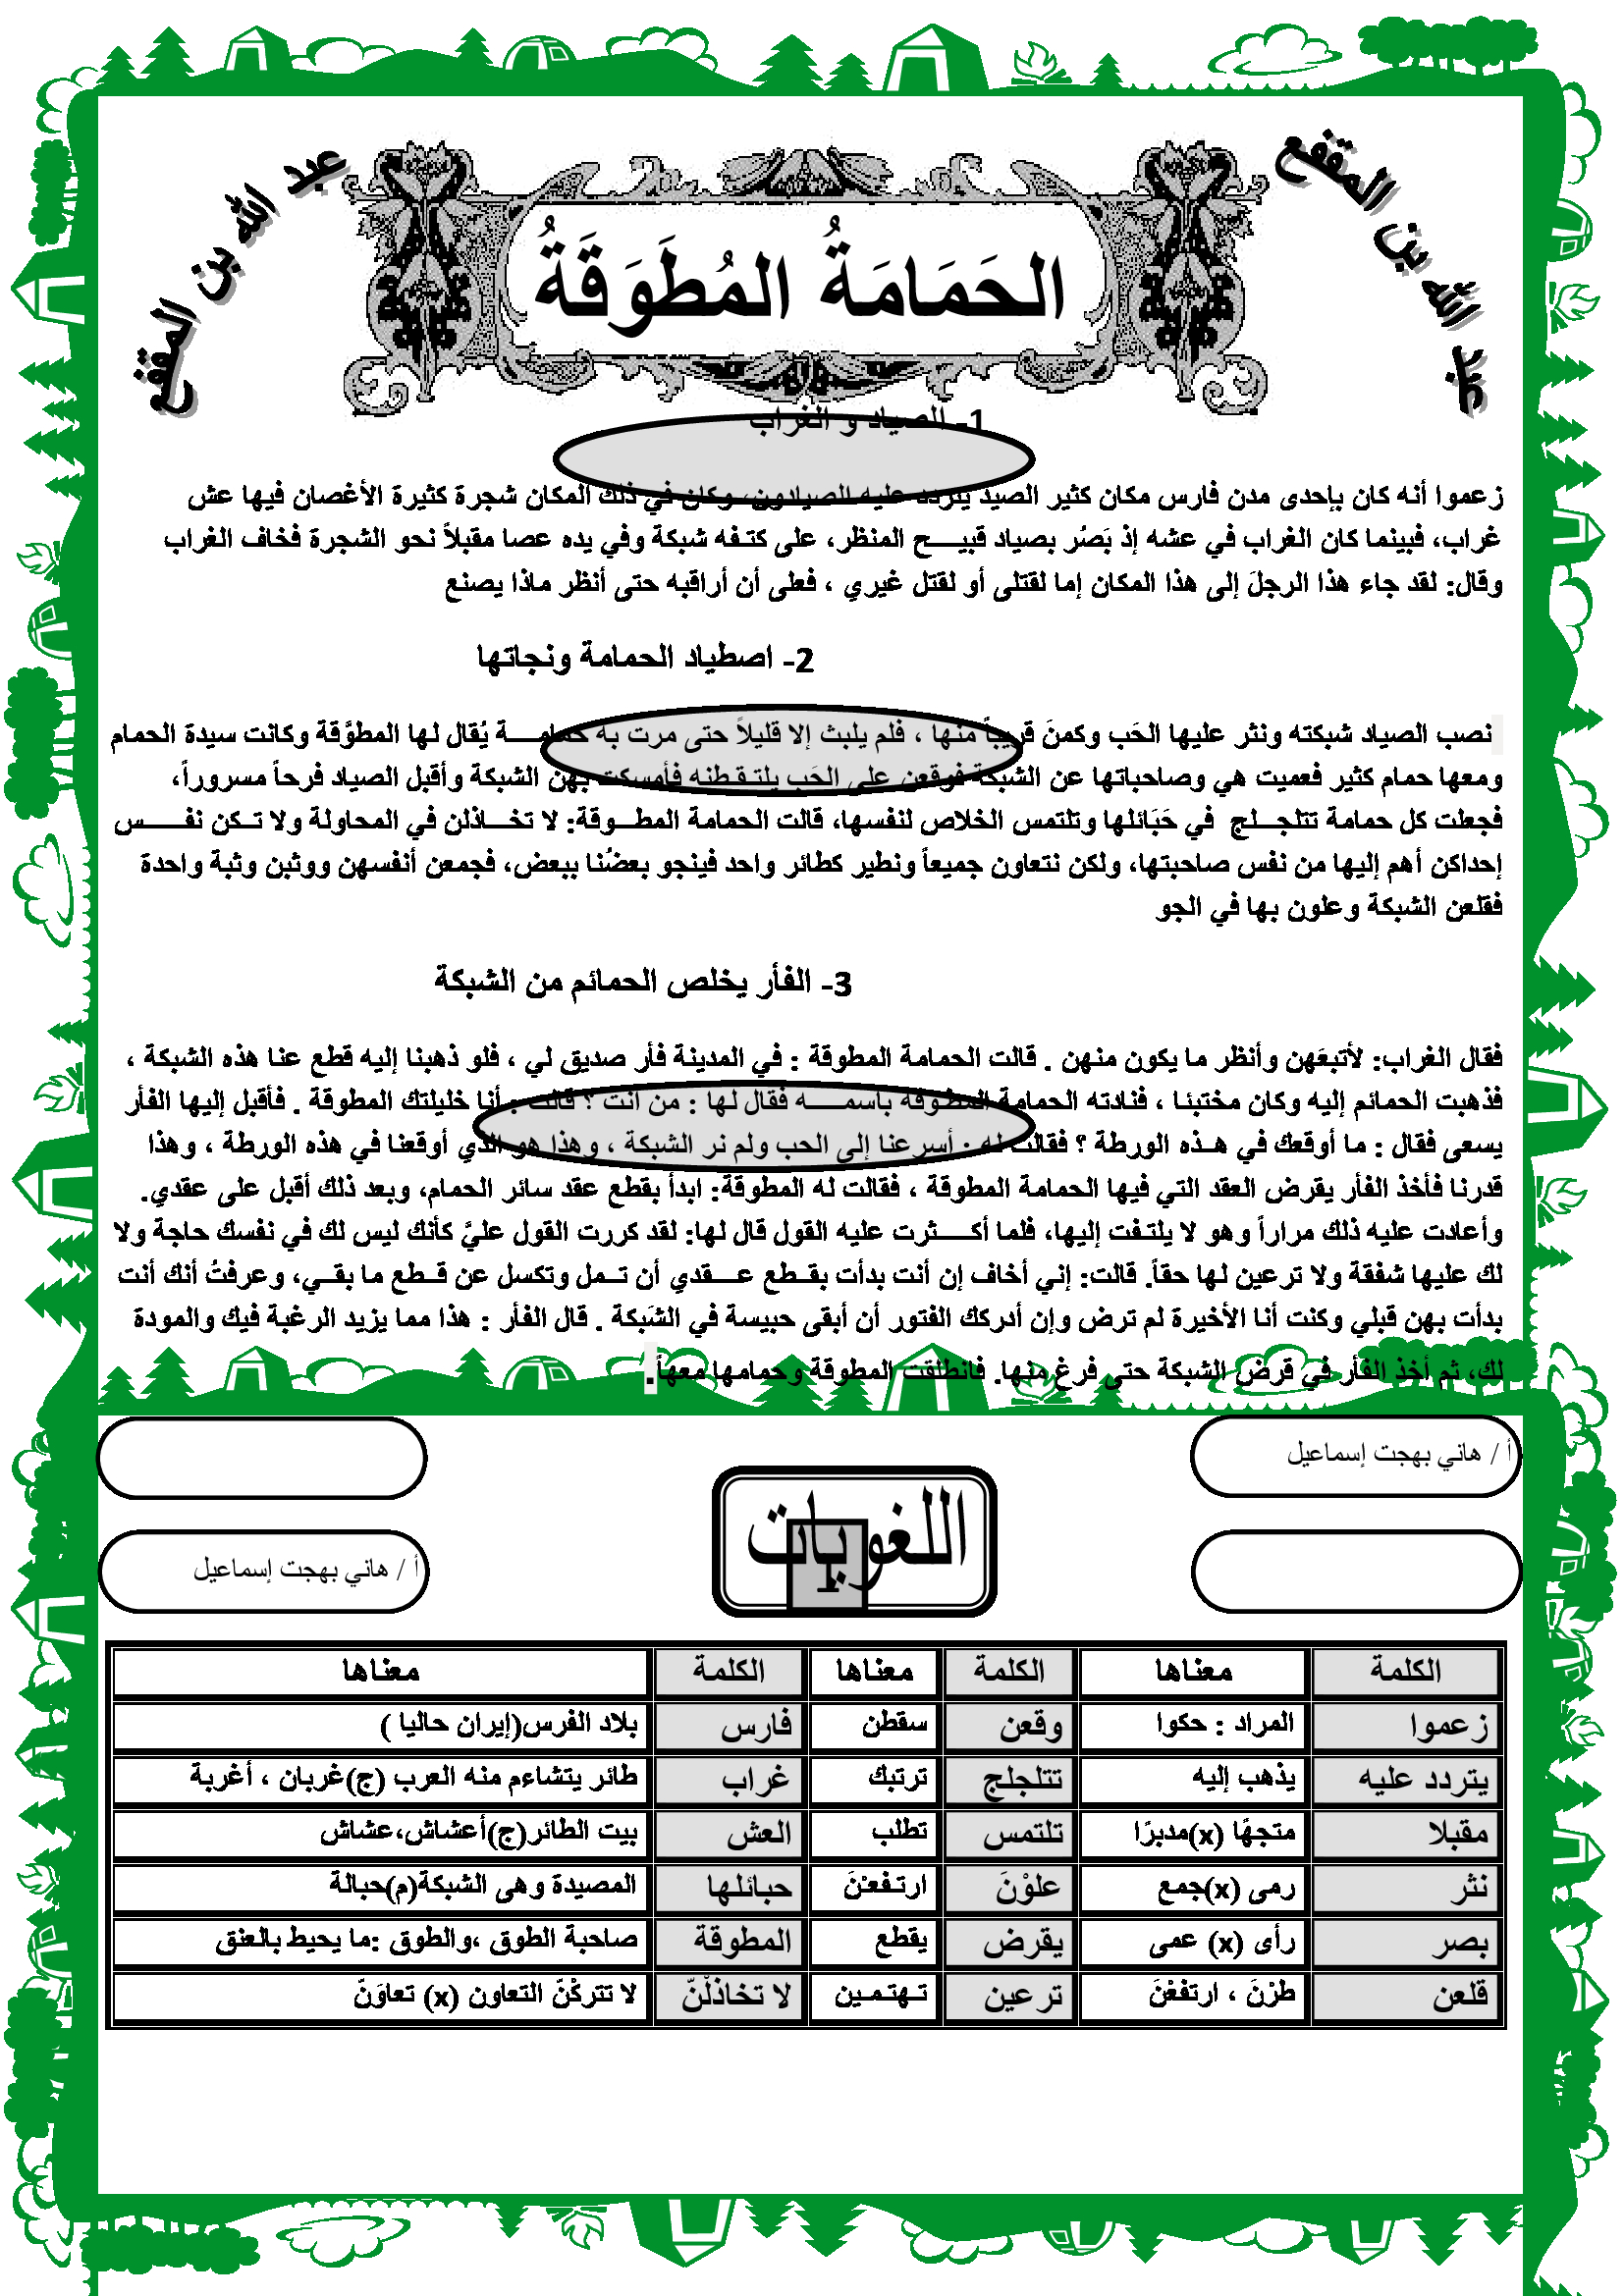 عبد الله بن المقفع
عبد الله بن المقفع
الحَمَامَةُ المُطَوَقَةُ
1- الصياد و الغراب
زعموا أنه كان بإحدى مدن فارس مكان كثير الصيد يتردد عليه الصيادون، وكان في ذلك المكان شجرة كثيرة الأغصان فيها عش
غراب، فبينما كان الغراب في عشه إذ بَصُر بصياد قبيـــح المنظر، على كتـفه شبكة وفي يده عصا مقبلاً نحو الشجرة فخاف الغراب
وقال: لقد جاء هذا الرجلَ إلى هذا المكان إما لقتلى أو لقتل غيري ، فعلى أن أراقبه حتى أنظر ماذا يصنع
2- اصطياد الحمامة ونجاتها
نصب الصياد شبكته ونثر عليها الحَب وكمنَ قريباً منها ، فلم يلبث إلا قليلاً حتى مرت به حمامـــة يُقال لها المطوَّقة وكانت سيدة الحمام
ومعها حمام كثير فعميت هي وصاحباتها عن الشبكة فوقعن على الحَب يلتـقـطنه فأمسكت بهن الشبكة وأقبل الصياد فرحاً مسروراً،
فجعلت كل حمامة تتلجـــلج في حَبَائلها وتلتمس الخلاص لنفسها، قالت الحمامة المطـــوقة: لا تخـــاذلن في المحاولة ولا تـكن نفــــس
إحداكن أهم إليها من نفس صاحبتها، ولكن نتعاون جميعاً ونطير كطائر واحد فينجو بعضُنا ببعض، فجمعن أنفسهن ووثبن وثبة واحدة
فقلعن الشبكة وعلون بها في الجو
3- الفأر يخلص الحمائم من الشبكة
فقال الغراب: لأتبعَهن وأنظر ما يكون منهن . قالت الحمامة المطوقة : في المدينة فأر صديق لي ، فلو ذهبنا إليه قطع عنا هذه الشبكة ،
فذهبت الحمائم إليه وكان مختبئا ، فنادته الحمامة المطوقة باسمـــه فقال لها : من أنت ؟ قالت : أنا خليلتك المطوقة . فأقبل إليها الفأر
يسعى فقال : ما أوقعك في هـذه الورطة ؟ فقالت له : أسرعنا إلى الحب ولم نر الشبكة ، وهذا هو الذي أوقعنا في هذه الورطة ، وهذا
قدرنا فأخذ الفأر يقرض العقد التي فيها الحمامة المطوقة ، فقالت له المطوقة: ابدأ بقطع عقد سائر الحمام، وبعد ذلك أقبل على عقدي.
وأعادت عليه ذلك مراراً وهو لا يلتـفت إليها، فلما أكــــثرت عليه القول قال لها: لقد كررت القول عليَّ كأنك ليس لك في نفسك حاجة ولا
لك عليها شفقة ولا ترعين لها حقاً. قالت: إني أخاف إن أنت بدأت بقـطع عـــقدي أن تــمل وتكسل عن قــطع ما بقــي، وعرفتُ أنك أنت
بدأت بهن قبلي وكنت أنا الأخيرة لم ترض وإن أدركك الفتور أن أبقى حبيسة في الشَبكة . قال الفأر : هذا مما يزيد الرغبة فيك والمودة
لك، ثم أخذ الفأر في قرض الشبكة حتى فرغ منها. فانطلقت المطوقة وحمامها معهاً.
أ / هاني بهجت إسماعيل
اللغويات
1
أ / هاني بهجت إسماعيل
الكلمة معناها الكلمة معناها الكلمة معناها
زعموا المراد : حكوا وقعن سقطن فارس بلاد الفرس(إيران حاليا )
يتردد عليه يذهب إليه تتلجلج ترتبك غراب طائر يتشاءم منه العرب (ج)غربان ، أغربة
مقبلا متجهًا (x)مدبرًا تلتمس تطلب العش بيت الطائر(ج)أعشاش،عشاش
نثر رمى (x)جمع علوْنَ ارتـفعـْنَ حبائلها المصيدة وهى الشبكة(م)حبالة
بصر رأى (x) عمى يقرض يقطع المطوقة صاحبة الطوق ،والطوق :ما يحيط بالعنق
قلعن طرْنَ ، ارتفعْنَ ترعين تـهتـمـين لا تخاذلْنّ لا تتركْنّ التعاون (x) تعاوَنّ